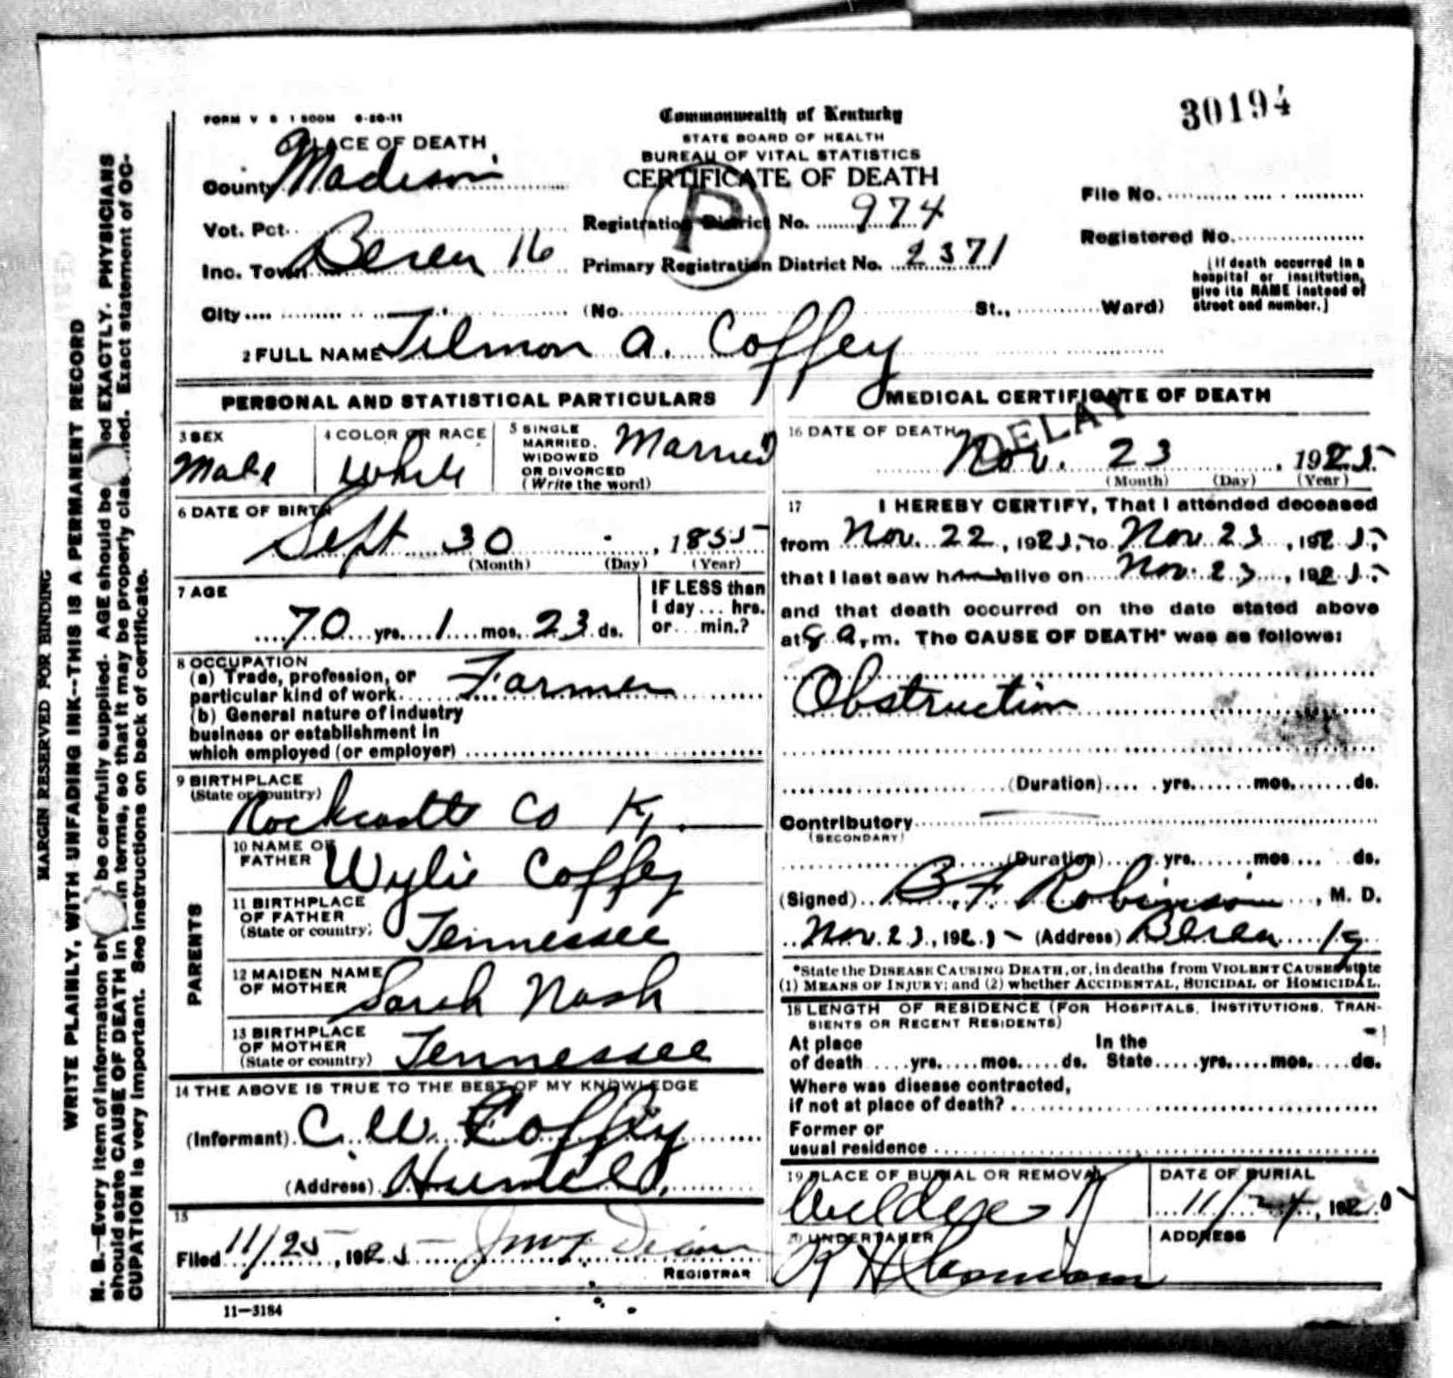 30194
FORM V S 1 500M 6-20-11
Commonwealth of Kentucky
STATE BOARD OF HEALTH
BUREAU OF VITAL STATISTICS
CERTIFICATE OF DEATH
PLACE OF DEATH
County Madison
Vot. Pct.
Inc. Town Berea 16
City
P
Registration District No. 974
Primary Registration District No. 2371
(No. St., Ward)
File No.
Registered No.
(If death occurred in a
hospital or institution,
give its NAME instead of
street and number.)
2 FULL NAME Tilmon A. Coffey
PERSONAL AND STATISTICAL PARTICULARS
3 SEX
Male
4 COLOR OR RACE
White
5 SINGLE
MARRIED,
WIDOWED
OR DIVORCED
(Write the word)
Married
6 DATE OF BIRTH
Sept 30, 1855
(Month) (Day) (Year)
7 AGE
70 yrs. 1 mos. 23 ds.
IF LESS than
1 day... hrs.
or... min.?
8 OCCUPATION
(a) Trade, profession, or
particular kind of work Farmer
(b) General nature of industry
business or establishment in
which employed (or employer)
9 BIRTHPLACE
(State or country)
Rockcastle Co Ky.
PARENTS
10 NAME OF
FATHER Wylie Coffey
11 BIRTHPLACE
OF FATHER
(State or country) Tennessee
12 MAIDEN NAME
OF MOTHER Sarah Nash
13 BIRTHPLACE
OF MOTHER
(State or country) Tennessee
14 THE ABOVE IS TRUE TO THE BEST OF MY KNOWLEDGE
(Informant) C. W. Coffey
(Address)
15
Filed 11/25, 1925
REGISTRAR
11—3184
MEDICAL CERTIFICATE OF DEATH
DELAY
16 DATE OF DEATH
Nov. 23, 1925
(Month) (Day) (Year)
17 I HEREBY CERTIFY, That I attended deceased
from Nov. 22, 1925, to Nov. 23, 1925,
that I last saw him alive on Nov. 23, 1925,
and that death occurred on the date stated above
at 8 a. m. The CAUSE OF DEATH* was as follows:
Obstruction
(Duration) yrs. mos. ds.
Contributory
(SECONDARY)
(Duration) yrs. mos. ds.
(Signed) B. F. Robinson, M. D.
Nov. 23, 1925 (Address) Berea Ky
*State the DISEASE CAUSING DEATH, or, in deaths from VIOLENT CAUSES state
(1) MEANS OF INJURY; and (2) whether ACCIDENTAL, SUICIDAL or HOMICIDAL.
18 LENGTH OF RESIDENCE (FOR HOSPITALS, INSTITUTIONS, TRAN-
SIENTS OR RECENT RESIDENTS)
At place In the
of death yrs. mos. ds. State yrs. mos. ds.
Where was disease contracted,
if not at place of death?
Former or
usual residence
19 PLACE OF BURIAL OR REMOVAL
DATE OF BURIAL
11/24, 1925
20 UNDERTAKER
ADDRESS
MARGIN RESERVED FOR BINDING
WRITE PLAINLY, WITH UNFADING INK--THIS IS A PERMANENT RECORD
N. B.—Every item of information sh be carefully supplied. AGE should be ed EXACTLY. PHYSICIANS
should state CAUSE OF DEATH in in terms, so that it may be properly clas ied. Exact statement of OC-
CUPATION is very important. See instructions on back of certificate.